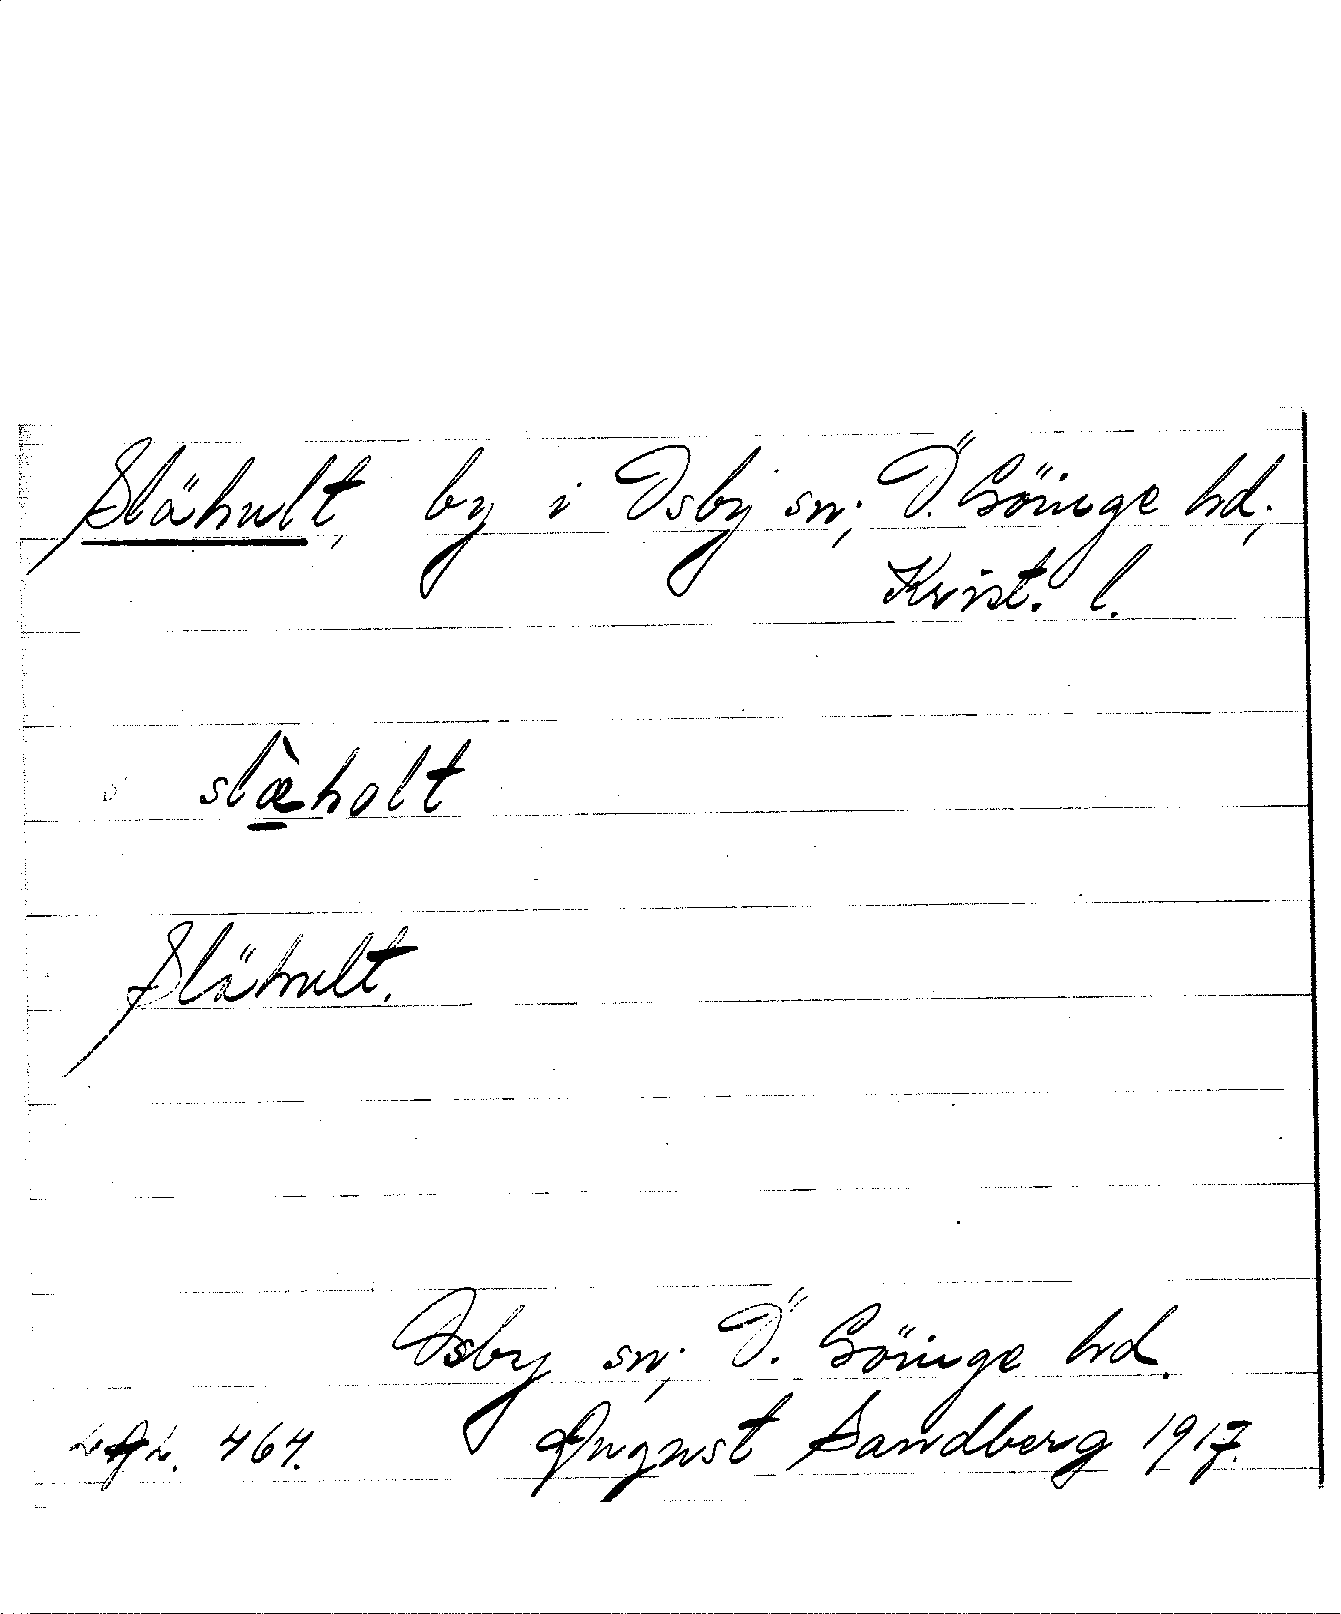 Slähult, by i Osby sn; Ö. Göinge hd;
Krist. l.
slæ̀holt
Slähult.
Osby sn; Ö. Göinge hd.
464. August Sandberg 1917.